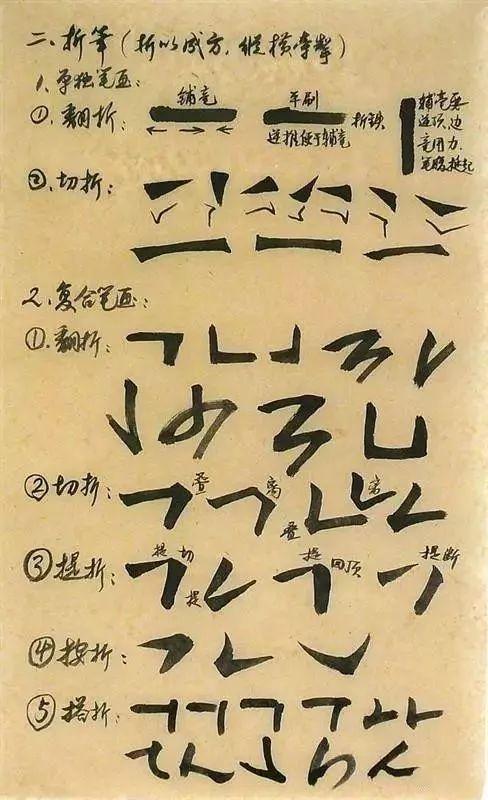 二、折笔(折以成方,纵横牵掣)
1、单独笔画:
①、翻折: 铺毫 平刷 折铁
逆推便于铺毫
铺毫要
逆顶、边
毫用力
笔腹挺起
②、切折:
2、复合笔画:
①、翻折:
②切折: 叠 离 叠 离
③提折: 提 切 提 提 回顶 提断
④按折:
⑤搭折: